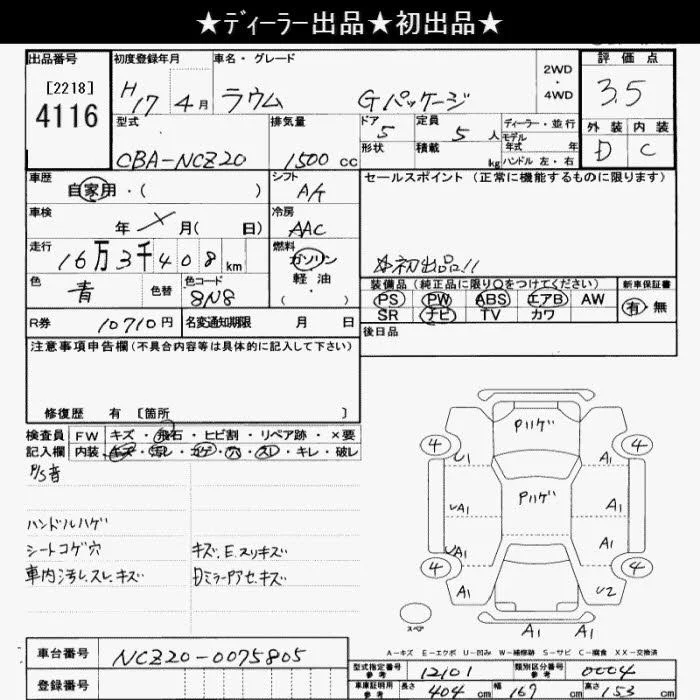 ★ディーラー出品★初出品★
出品番号
[2218]
4116
初度登録年月
H17年 4月
車名・グレード
ラウム Gパッケージ
2WD
・
4WD
評価点
3.5
外装 内装
D C
型式
CBA-NCZ20
排気量
1500 cc
ドア
5
形状
定員
5 人
積載
kg
ディーラー・並行
モデル
年式 年
ハンドル 左・右
車歴
自家用・( )
シフト
A/t
車検
年 月( 日)
冷房
AAC
走行
16万3千408 km
燃料
ガソリン
軽油
・
( )
色
青
色替
色コード
8N8
R券
10710円
名変通知期限 月 日
セールスポイント (正常に機能するものに限ります)
☆初出品!!
装備品(純正品に限り○をつけてください)
PS PW ABS エアB AW
SR ナビ TV カワ
新車保証書
有・無
後日品
注意事項申告欄(不具合内容等は具体的に記入して下さい)
修復歴 有 [箇所 ]
検査員 FW キズ・飛石・ヒビ割・リペア跡・×要
記入欄 内装 キズ・汚レ・コゲ・穴・スレ・キレ・破レ
P/S音
ハンドルハゲ
シートコゲ穴
車内汚レ.スレ.キズ
キズ.E.スリキズ
DミラーPアセ.キズ
Pハゲ
Pハゲ
4
4
4
4
U1
A1
UA1
A1
UA1
A1
A1
U2
A1 A1
スペア
A-キズ E-エクボ U-凹み W-補修跡 S-サビ C-腐食 XX-交換済
車台番号
NCZ20-0075805
登録番号
型式指定番号
参考
12101
類別区分番号
参考
0004
車庫証明用
参考
長さ 404 cm 幅 169 cm 高さ 153 cm